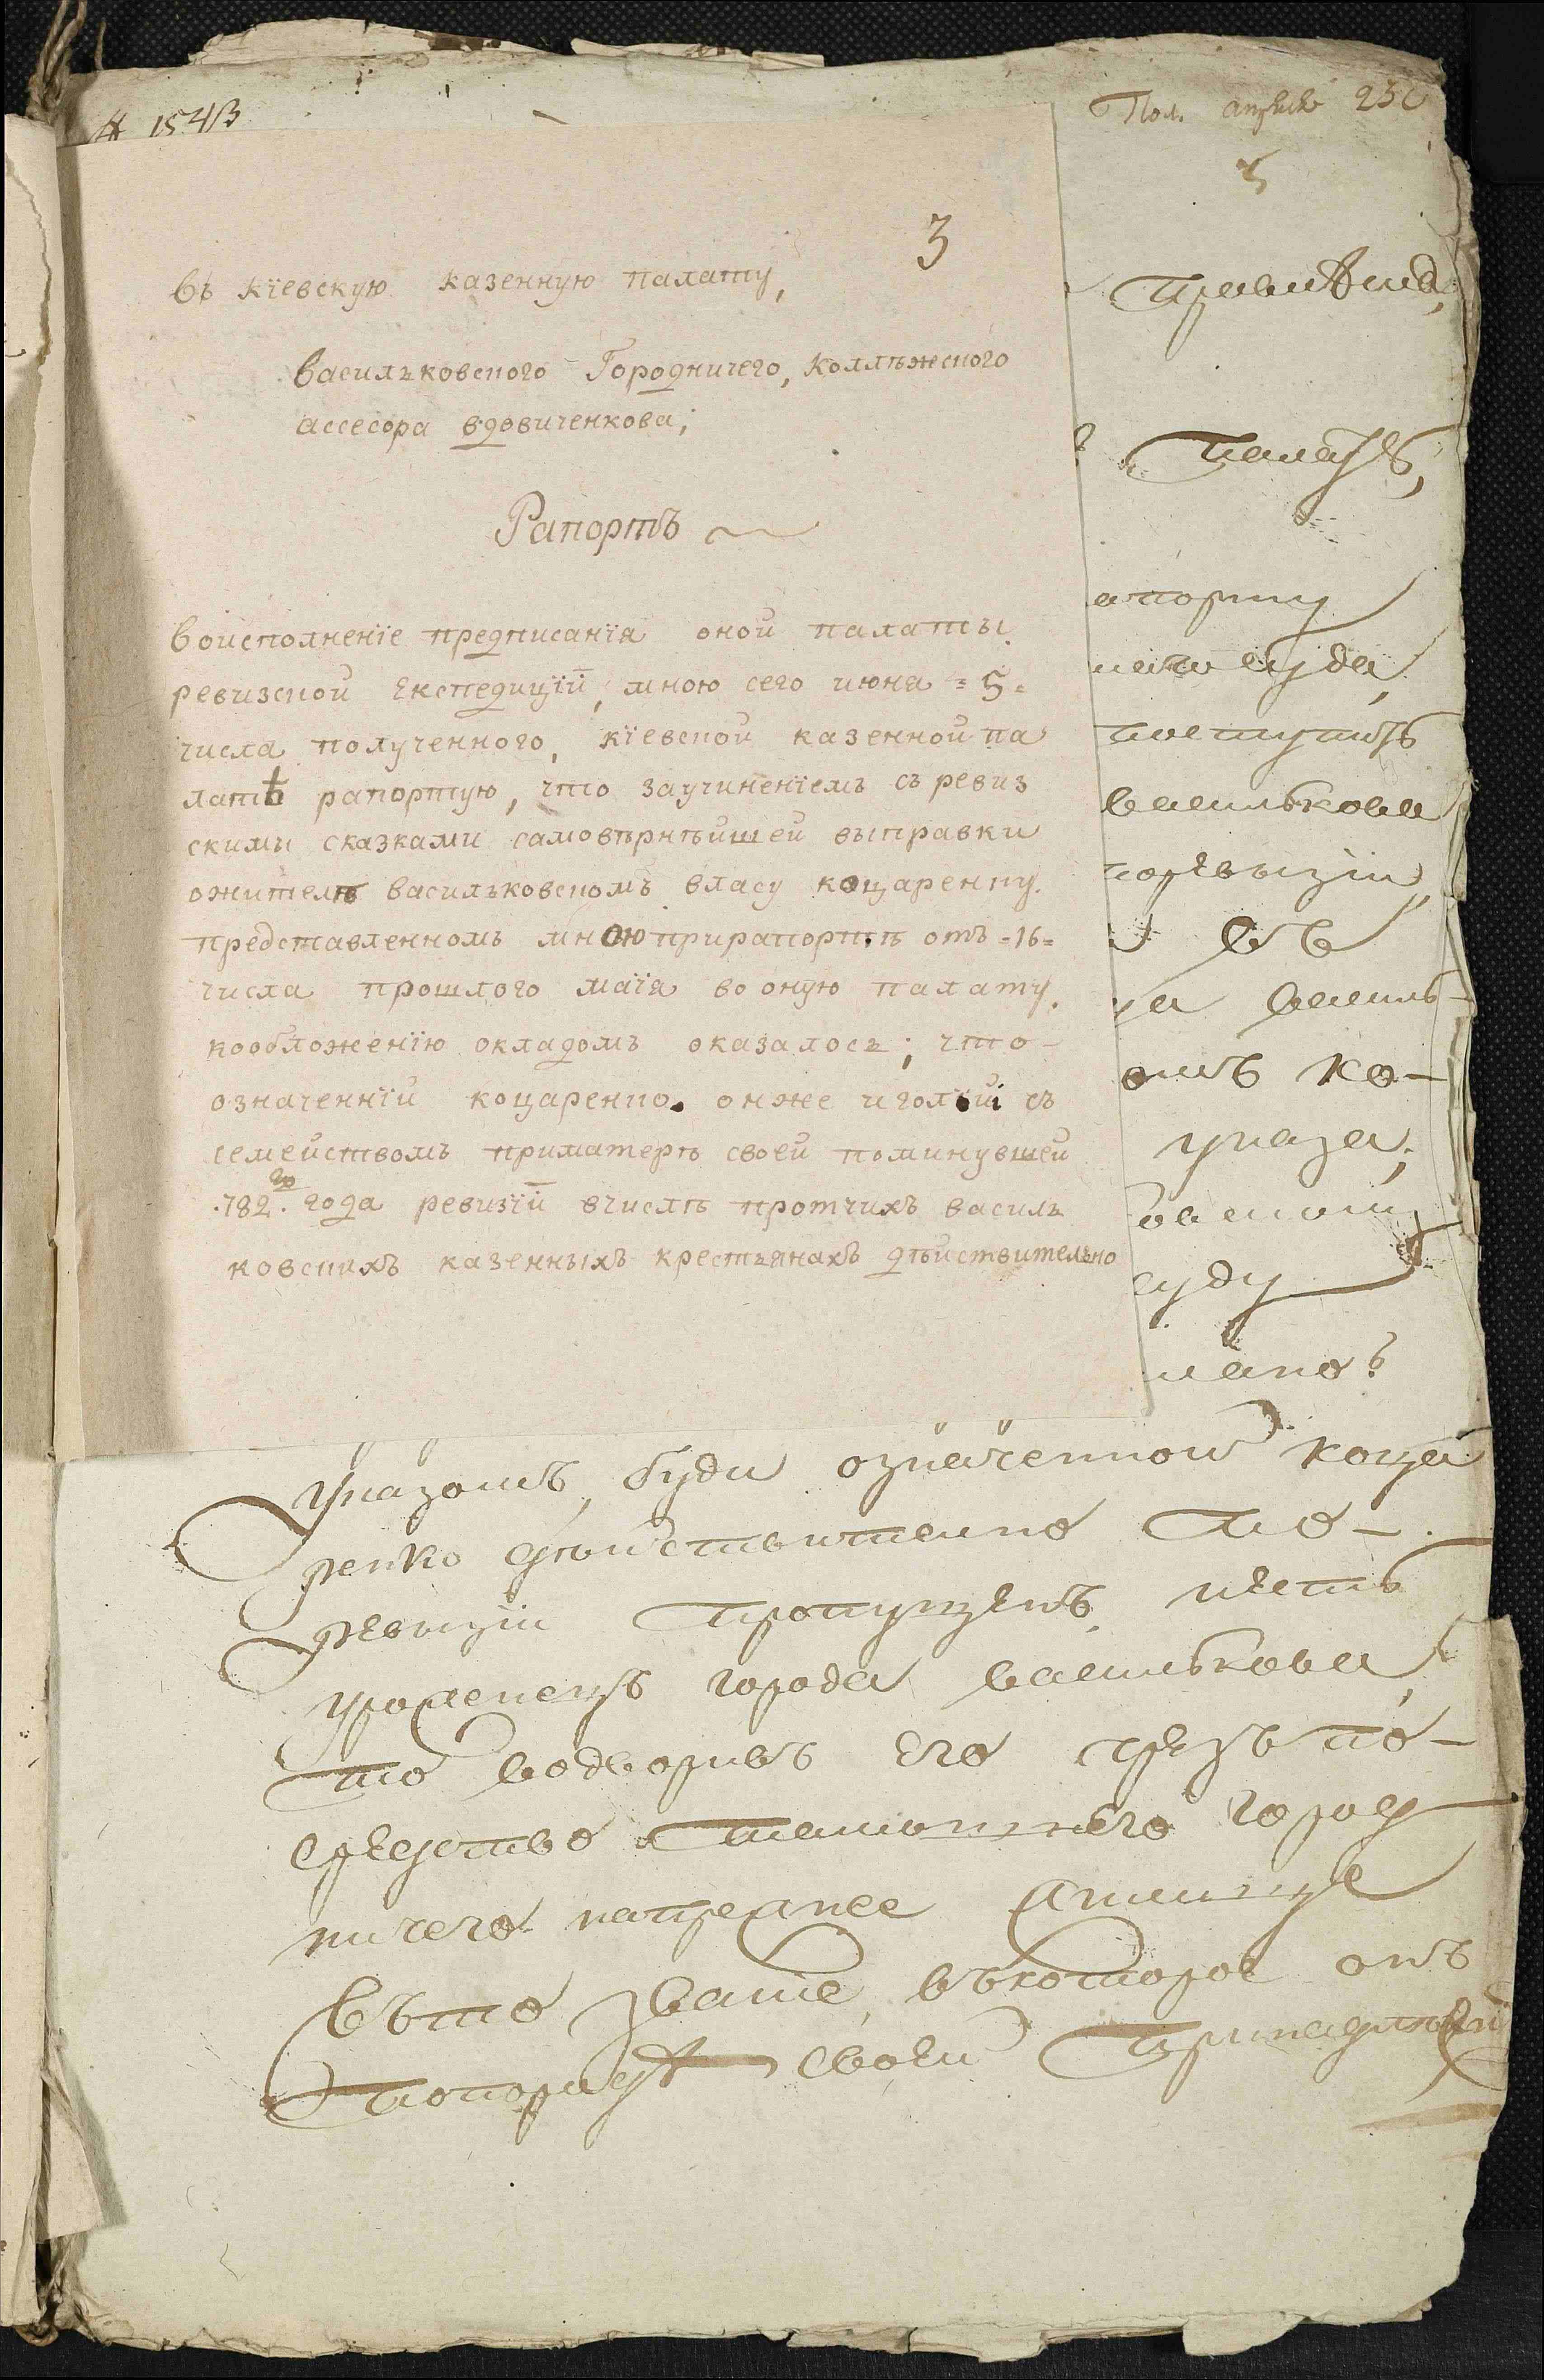 № 1543
3
въ кїевскую казенную палату,
васильковского Городничего, коллѣжского
ассесора вдовиченкова;
Рапортъ
воисполненїе предписанїя оной палаты
ревизской експедицїй, мною сего июня =5=
числа полученного, кїевской казенной па
латѣ рапортую, что заучиненїемъ съ ревиз
скимы сказками самовѣрнѣйшей выправки
ожителѣ васильковскомъ власу коцаренку.
представленномъ мною прирапортѣ отъ =16=
числа прошлого маїя во оную палату.
кообложенїю окладомъ оказалось; что-
означеннїй коцаренко. онже иголїй съ
семействомъ приматерѣ своей поминувшей
.782. го года ревизїй вчислѣ протчихъ василь
ковскихъ казенныхъ крестьянахъ дѣйствительно
Пол. апреля
палатѣ,
апорту
суда
поступитъ
василькова
поревизїи
въ
василь-
омъ ко-
указа,
суду
указомъ, буди означенной коца
ренко дѣйствително по-
ревизїи пропущенъ, и есть
уроженецъ города василькова,
то водворивъ его чрезъ по-
средство тамошнего город
ничего напрежнее жилище
въто званїе, вькоторое онъ
своей